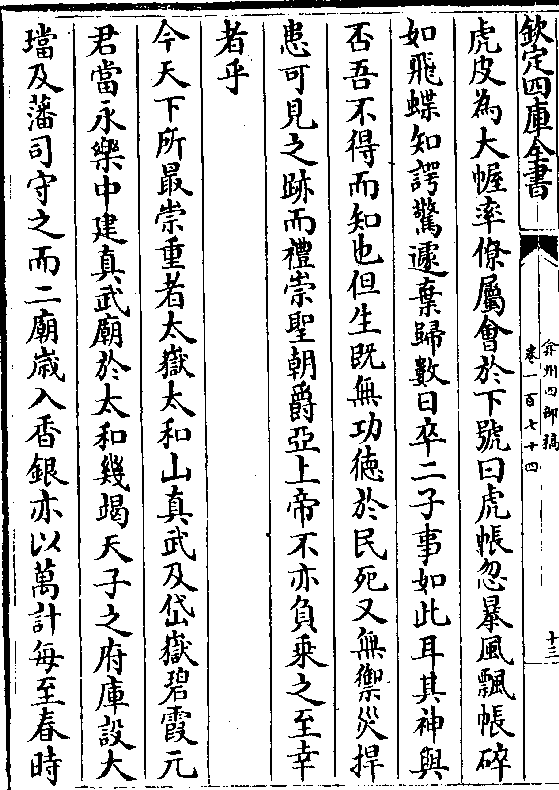 欽定四庫全書
弇州四部稿
卷一百七十四
十三
虎皮為大幄率僚屬會於下號曰虎帳忽暴風飄帳碎
如飛蝶知諤驚遽棄歸數日卒二子事如此耳其神與
否吾不得而知也但生既無功徳於民死又無禦災捍
患可見之跡而禮崇聖朝爵亞上帝不亦負乗之至幸
者乎
今天下所最崇重者太嶽太和山真武及岱嶽碧霞元
君當永樂中建真武廟於太和幾竭天子之府庫設大
璫及藩司守之而二廟嵗入香銀亦以萬計每至春時